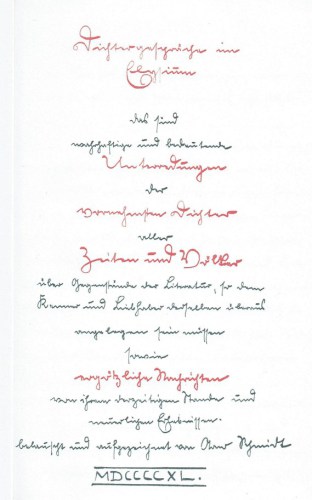 Dichtergespräche im
Elysium
das sind
wahrhaftige und bedeutende
Unterredungen
der
vornehmsten Dichter
aller
Zeiten und Völker
über Gegenstände der Literatur, so dem
Kenner und Liebhaber derselben überaus
angelegen sein müssen
sowie
ergötzliche Nachrichten
von ihrem derzeitigen Stande und
neuerlichen Erlebnissen.
belauscht und aufgezeichnet von Arno Schmidt
MDCCCCXL.